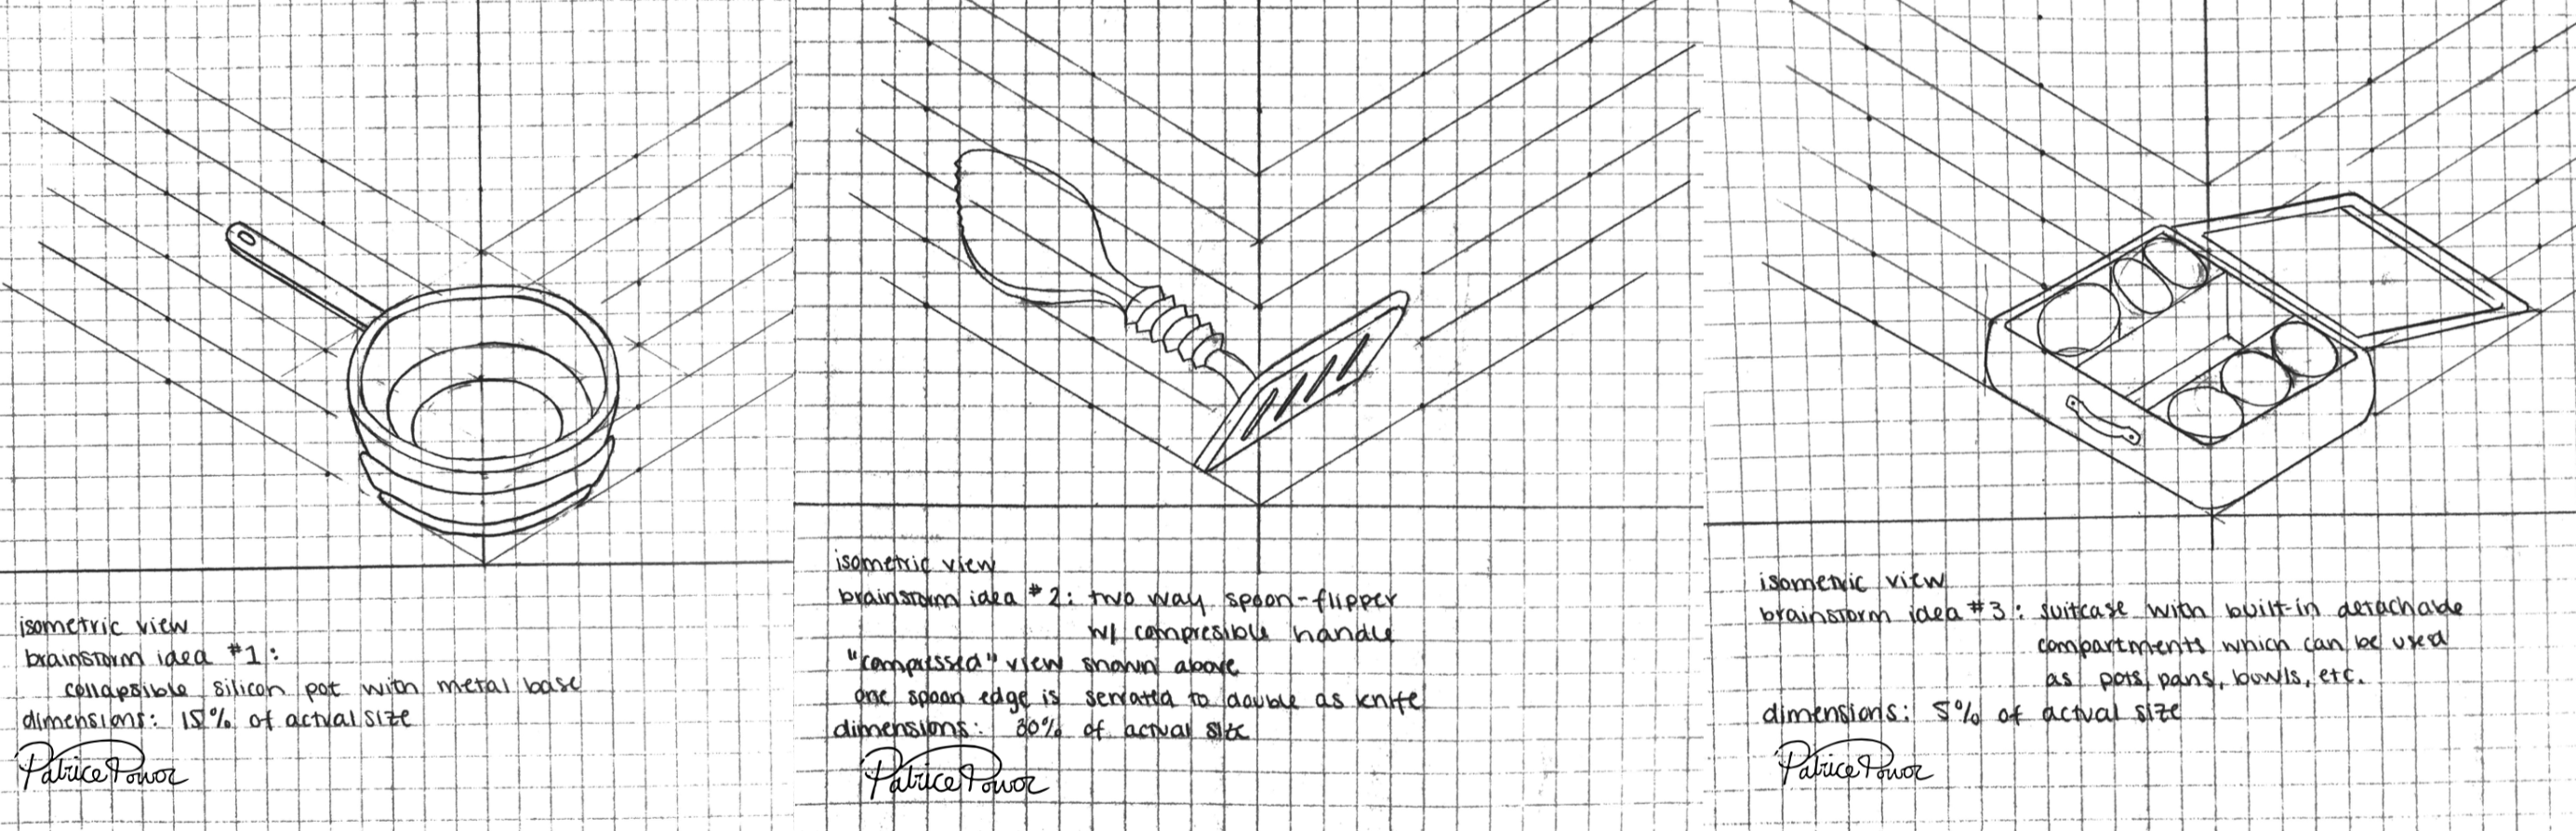 isometric view
brainstorm idea #1:
collapsible silicon pot with metal base
dimensions: 15% of actual size
Patrice Power
isometric view
brainstorm idea #2: two way spoon-flipper
w/ compresible handle
"compressed" view shown above
one spoon edge is serrated to double as knife
dimensions: 30% of actual size
Patrice Power
isometric view
brainstorm idea #3: suitcase with built-in detachable
compartments which can be used
as pots, pans, bowls, etc.
dimensions: 5% of actual size
Patrice Power